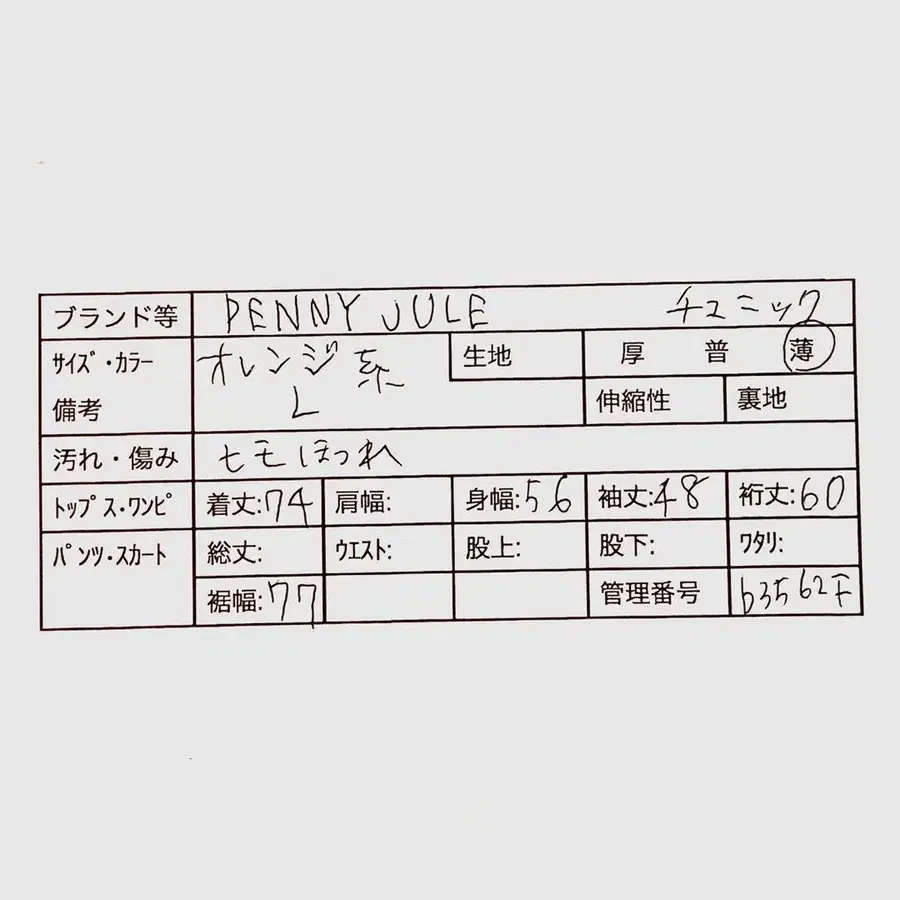 ブランド等 PENNY JULE チュニック
サイズ・カラー オレンジ系 生地 厚 普 薄
備考 L 伸縮性 裏地
汚れ・傷み ヒモほつれ
トップス・ワンピ 着丈:74 肩幅: 身幅:56 袖丈:48 裄丈:60
パンツ・スカート 総丈: ウエスト: 股上: 股下: ワタリ:
裾幅:77 管理番号 b3562F